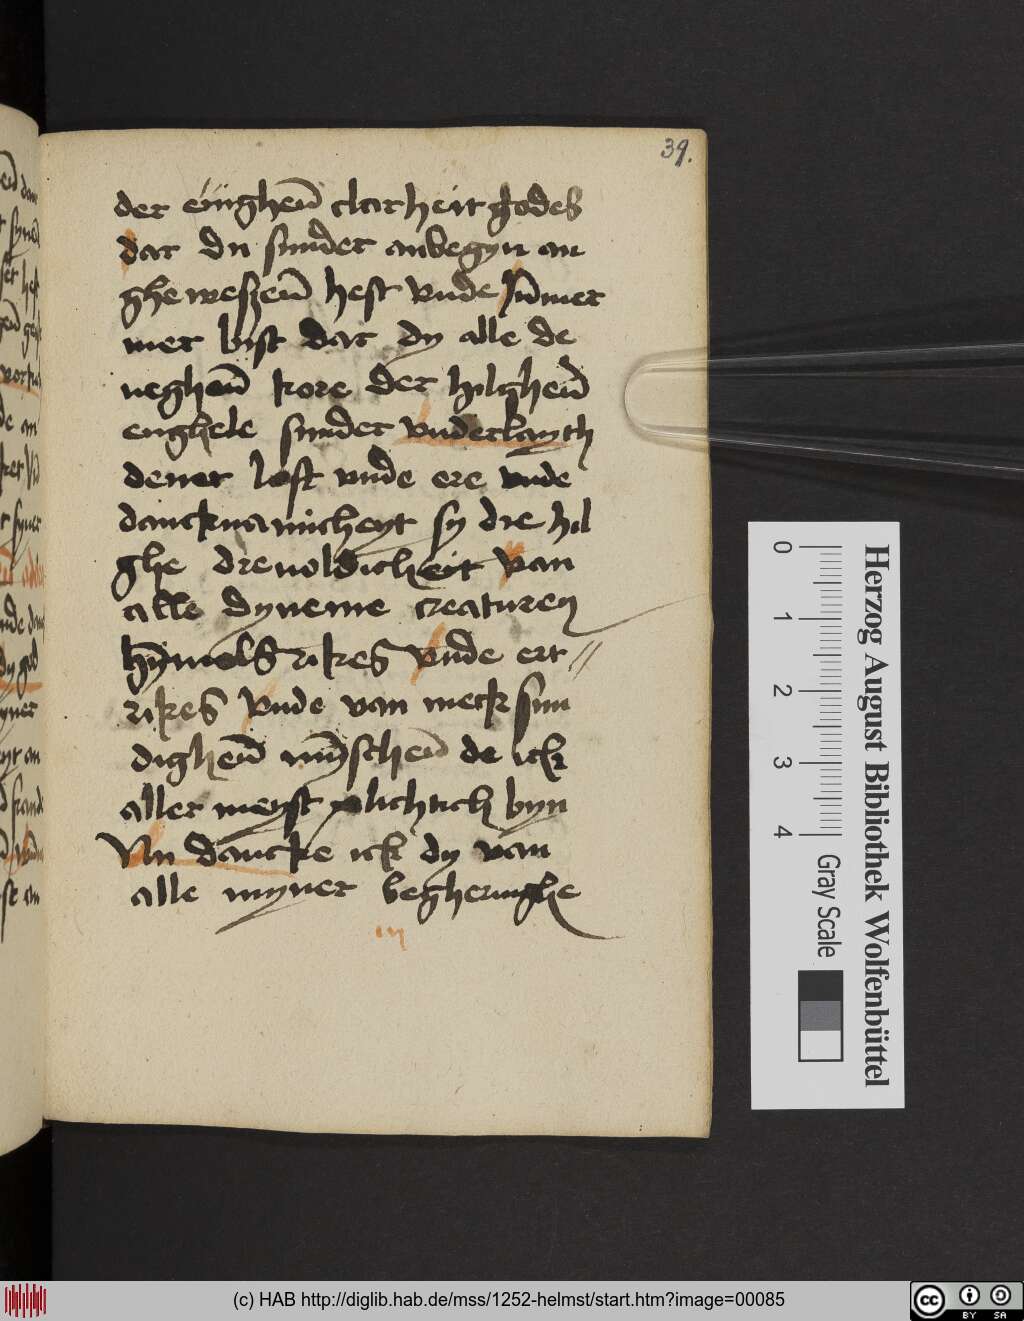 39.
der ewighen̄ clarheit godes
dat du sunder anbegyn an
ghe weszen̄ hest vnde ūmmer
mer bist dat dy alle de
neghen̄ kore der hilghen̄
enghele sunder vnderlayth
dener loft vnde ere vnde
dancknamicheyt sy dre hil
ghe dreuoldicheit van
alle dyneme creaturen
hȳmols rikes vnde ert
rikes vnde van mek sun
dighen̄ mȳschen̄ de ick
aller meyst plichtich byn
Vn dancke ick dy van
alle myner begheringhe
Herzog August Bibliothek Wolfenbüttel
0 1 2 3 4
Gray Scale
(c) HAB http://diglib.hab.de/mss/1252-helmst/start.htm?image=00085
cc BY SA